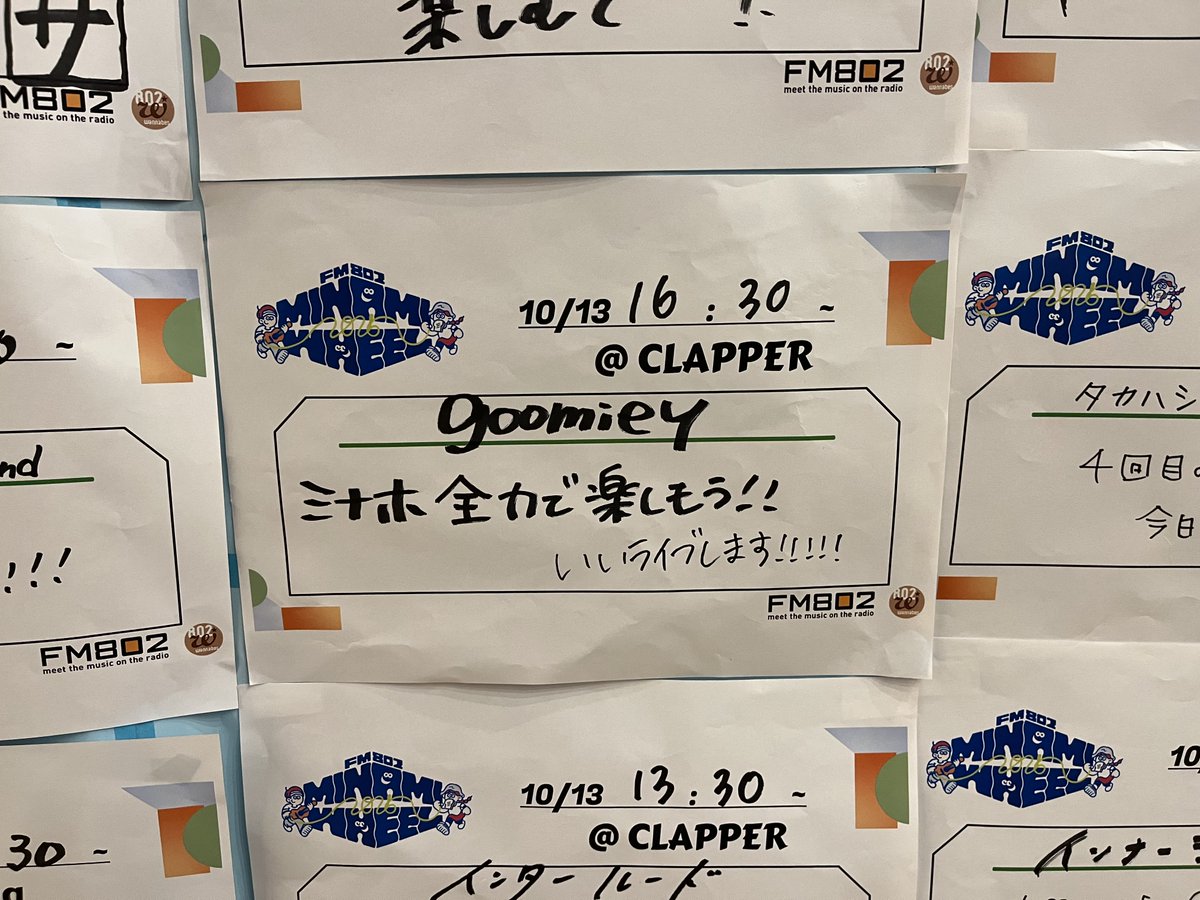 サ
FM802
the music on the radio
802
wannabes
楽しむぞ !!
FM802
meet the music on the radio
802
FM802
MINAMI
2026
WHEEL
10/13 16:30~
@ CLAPPER
goomiey
ミナホ 全力で楽しもう!!
いいライブします!!!!!
FM802
meet the music on the radio
802
~
nd
!!!
FM802
meet the music on the radio
802
wannabes
FM802
MINAMI
2026
WHEEL
タカハシ
4回目の
今日
FM802
MINAMI
2026
WHEEL
10/13 13:30~
@ CLAPPER
インタールード
30~
FM802
MINAMI
2026
WHEEL
10/
インナー